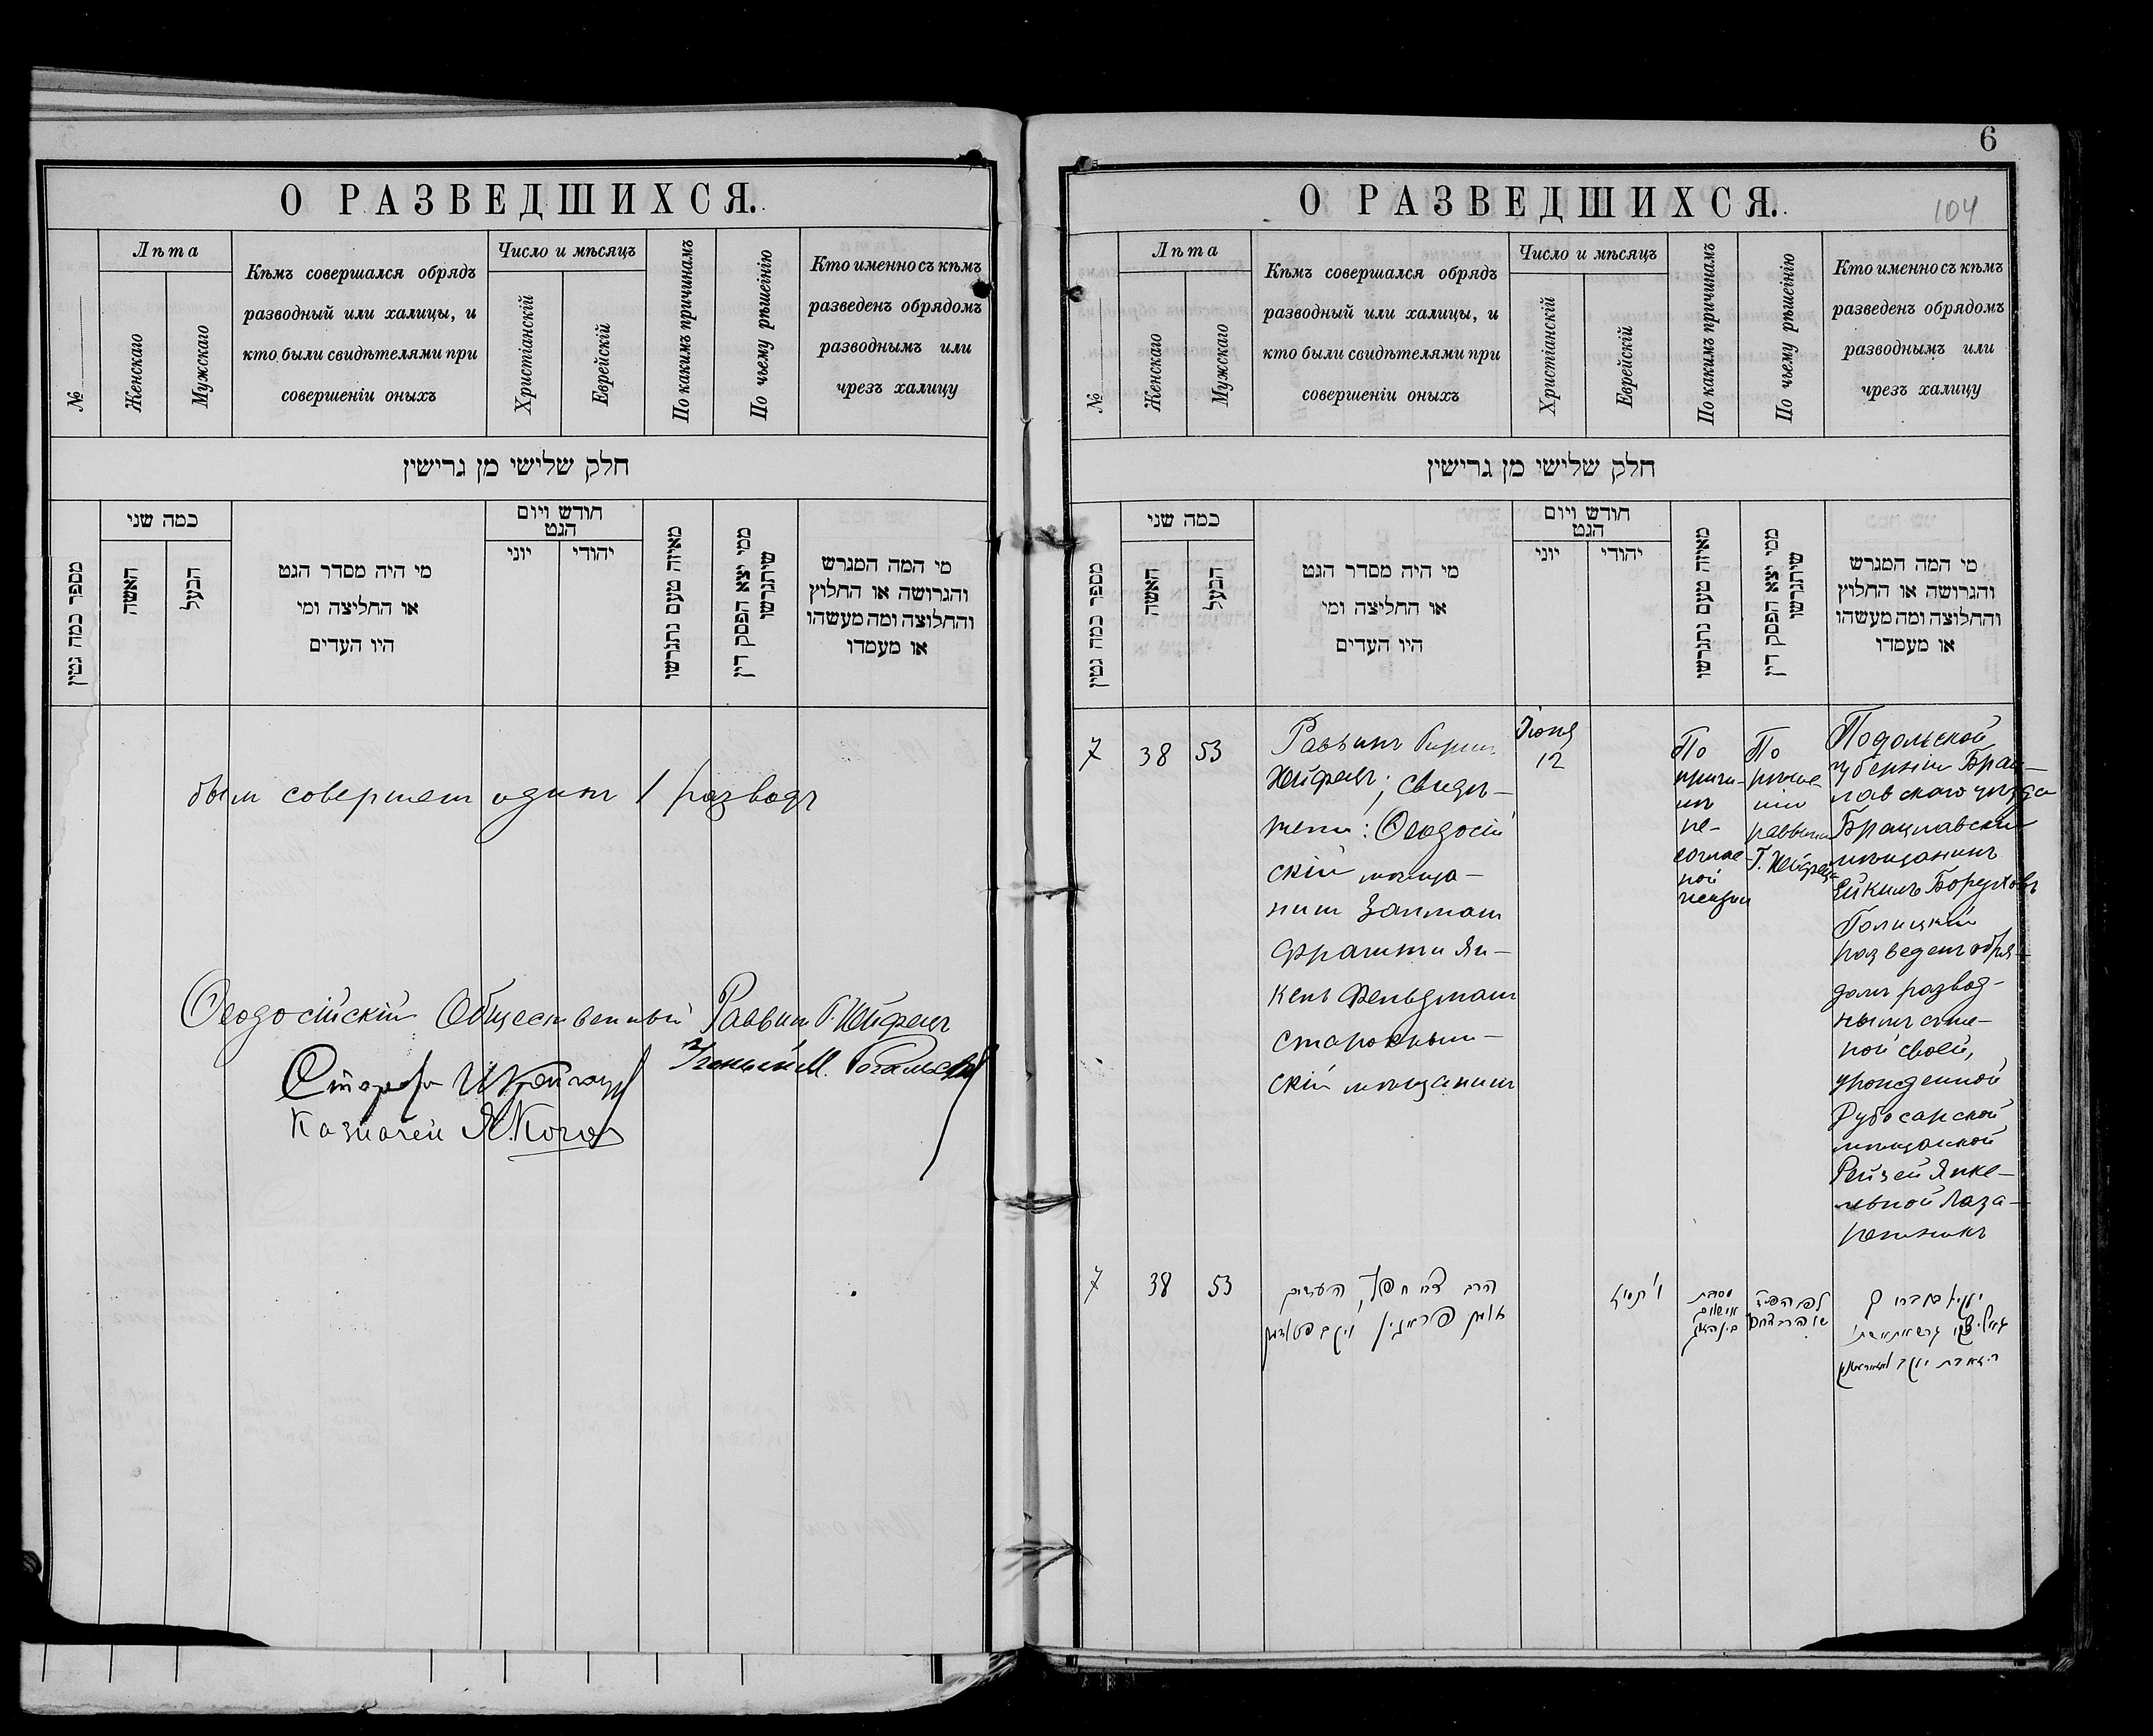 О РАЗВЕДШИХСЯ.
№
Лѣта
Женскаго
Мужскаго
Кѣмъ совершался обрядъ
разводный или халицы, и
кто были свидѣтелями при
совершеніи оныхъ
Число и мѣсяцъ
Христіанскій
Еврейскій
По какимъ причинамъ
По чьему рѣшенію
Кто именно съ кѣмъ
разведенъ обрядомъ
разводнымъ или
чрезъ халицу
חלק שלישי מן גרישין
מספר כמה גטין
כמה שני
האשה
הבעל
מי היה מסדר הגט
או החליצה ומי
היו העדים
חודש ויום
הגט
יוני
יהודי
מאיזה טעם נתגרשו
ממי יצא הפסק דין
שיתגרשו
מי המה המגרש
והגרושה או החלוץ
והחלוצה ומה מעשהו
או מעמדו
был совершен один 1 развод
Ѳеодосійскій Общественный Раввин Г. Хейфец
Староста
Ученый М.
Казначей Я. Коган
6
104
О РАЗВЕДШИХСЯ.
№
Лѣта
Женскаго
Мужскаго
Кѣмъ совершался обрядъ
разводный или халицы, и
кто были свидѣтелями при
совершеніи оныхъ
Число и мѣсяцъ
Христіанскій
Еврейскій
По какимъ причинамъ
По чьему рѣшенію
Кто именно съ кѣмъ
разведенъ обрядомъ
разводнымъ или
чрезъ халицу
חלק שלישי מן גרישין
מספר כמה גטין
כמה שני
האשה
הבעל
מי היה מסדר הגט
או החליצה ומי
היו העדים
חודש ויום
הגט
יוני
יהודי
מאיזה טעם נתגרשו
ממי יצא הפסק דין
שיתגרשו
מי המה המגרש
והגרושה או החלוץ
והחלוצה ומה מעשהו
או מעמדו
7
38
53
Раввинъ Гирш
Хейфец; свидѣ-
тели: Ѳеодосій
скій мѣща-
нин Залман
Фраткин Ян-
кель Фельдман
Старокрым-
скій мѣщанин
Іюня
12
По
причи-
нѣ
не-
соглас-
ной
жизни
По
рѣше-
нію
раввина
Г. Хейфец
Подольской
губерніи Брац-
лавскаго уѣзда
Брацлавскій
мѣщанинъ
Ейкиль Боруховъ
Голицкій
разведен обря-
дом развод-
ным с же-
ной своей,
урожденной
Дубосарской
мѣщанкой
Рейзей Янке-
левной Лаза-
7
38
53